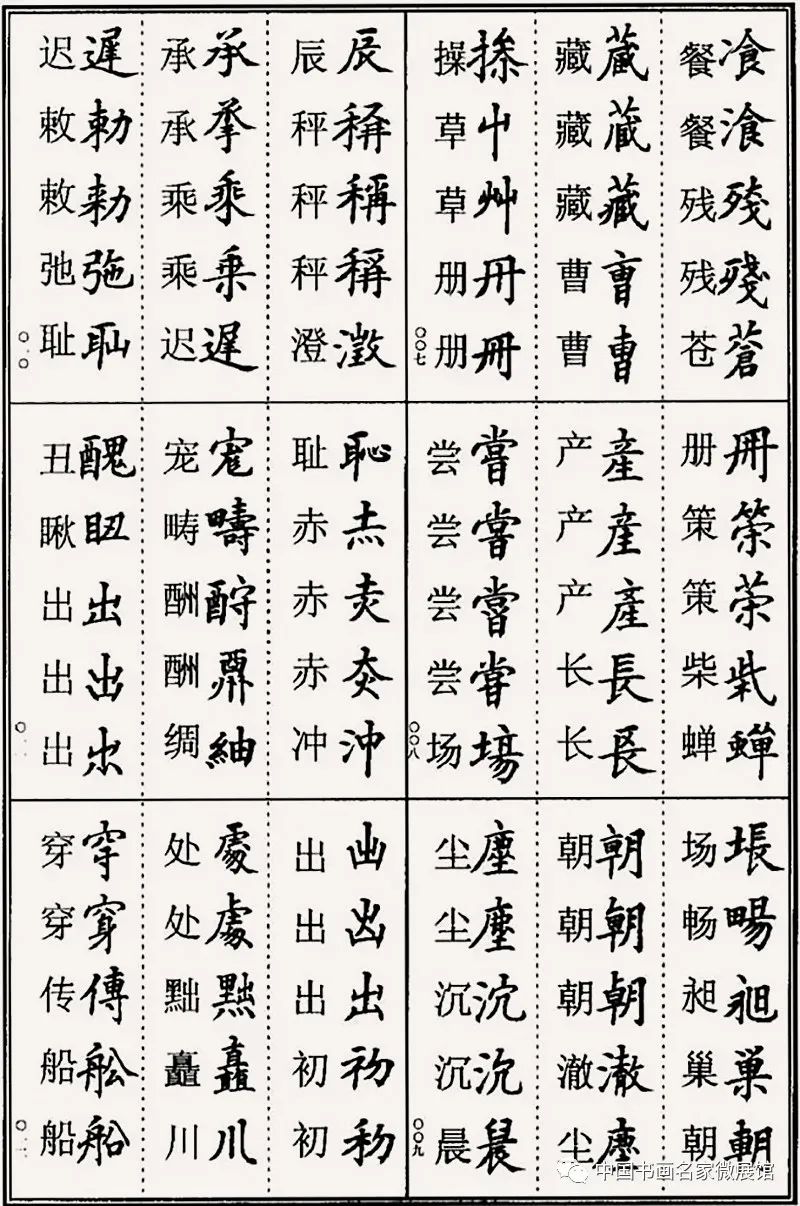 餐飡
餐湌
残殘
残殘
苍蒼
藏蔵
藏藏
藏藏
曹曺
曹曹
操
草屮
草艸
册冊
册冊
〇〇七
册冊
策筞
策
柴
蝉蟬
产産
产産
产產
长長
长镸
尝嘗
尝嘗
尝嘗
尝甞
场塲
〇〇八
场
畅暘
昶昶
巢巣
朝朝
朝朝
朝朝
朝朝
澈澈
尘塵
尘塵
尘塵
沉沈
沉沉
晨晨
〇〇九
辰辰
秤稱
秤稱
秤稱
澄澂
承承
承承
乘乗
乘乗
迟遲
迟遲
敕勑
敕勑
弛㢮
耻耻
〇一〇
耻恥
赤
赤
赤
冲沖
宠
畴疇
酬酧
酬
绸紬
丑醜
瞅
出出
出出
出
〇一一
出
出
出出
初初
初
处處
处處
黜黜
矗矗
川川
穿穿
穿穿
传傳
船舩
船船
〇一二
中国书画名家微展馆